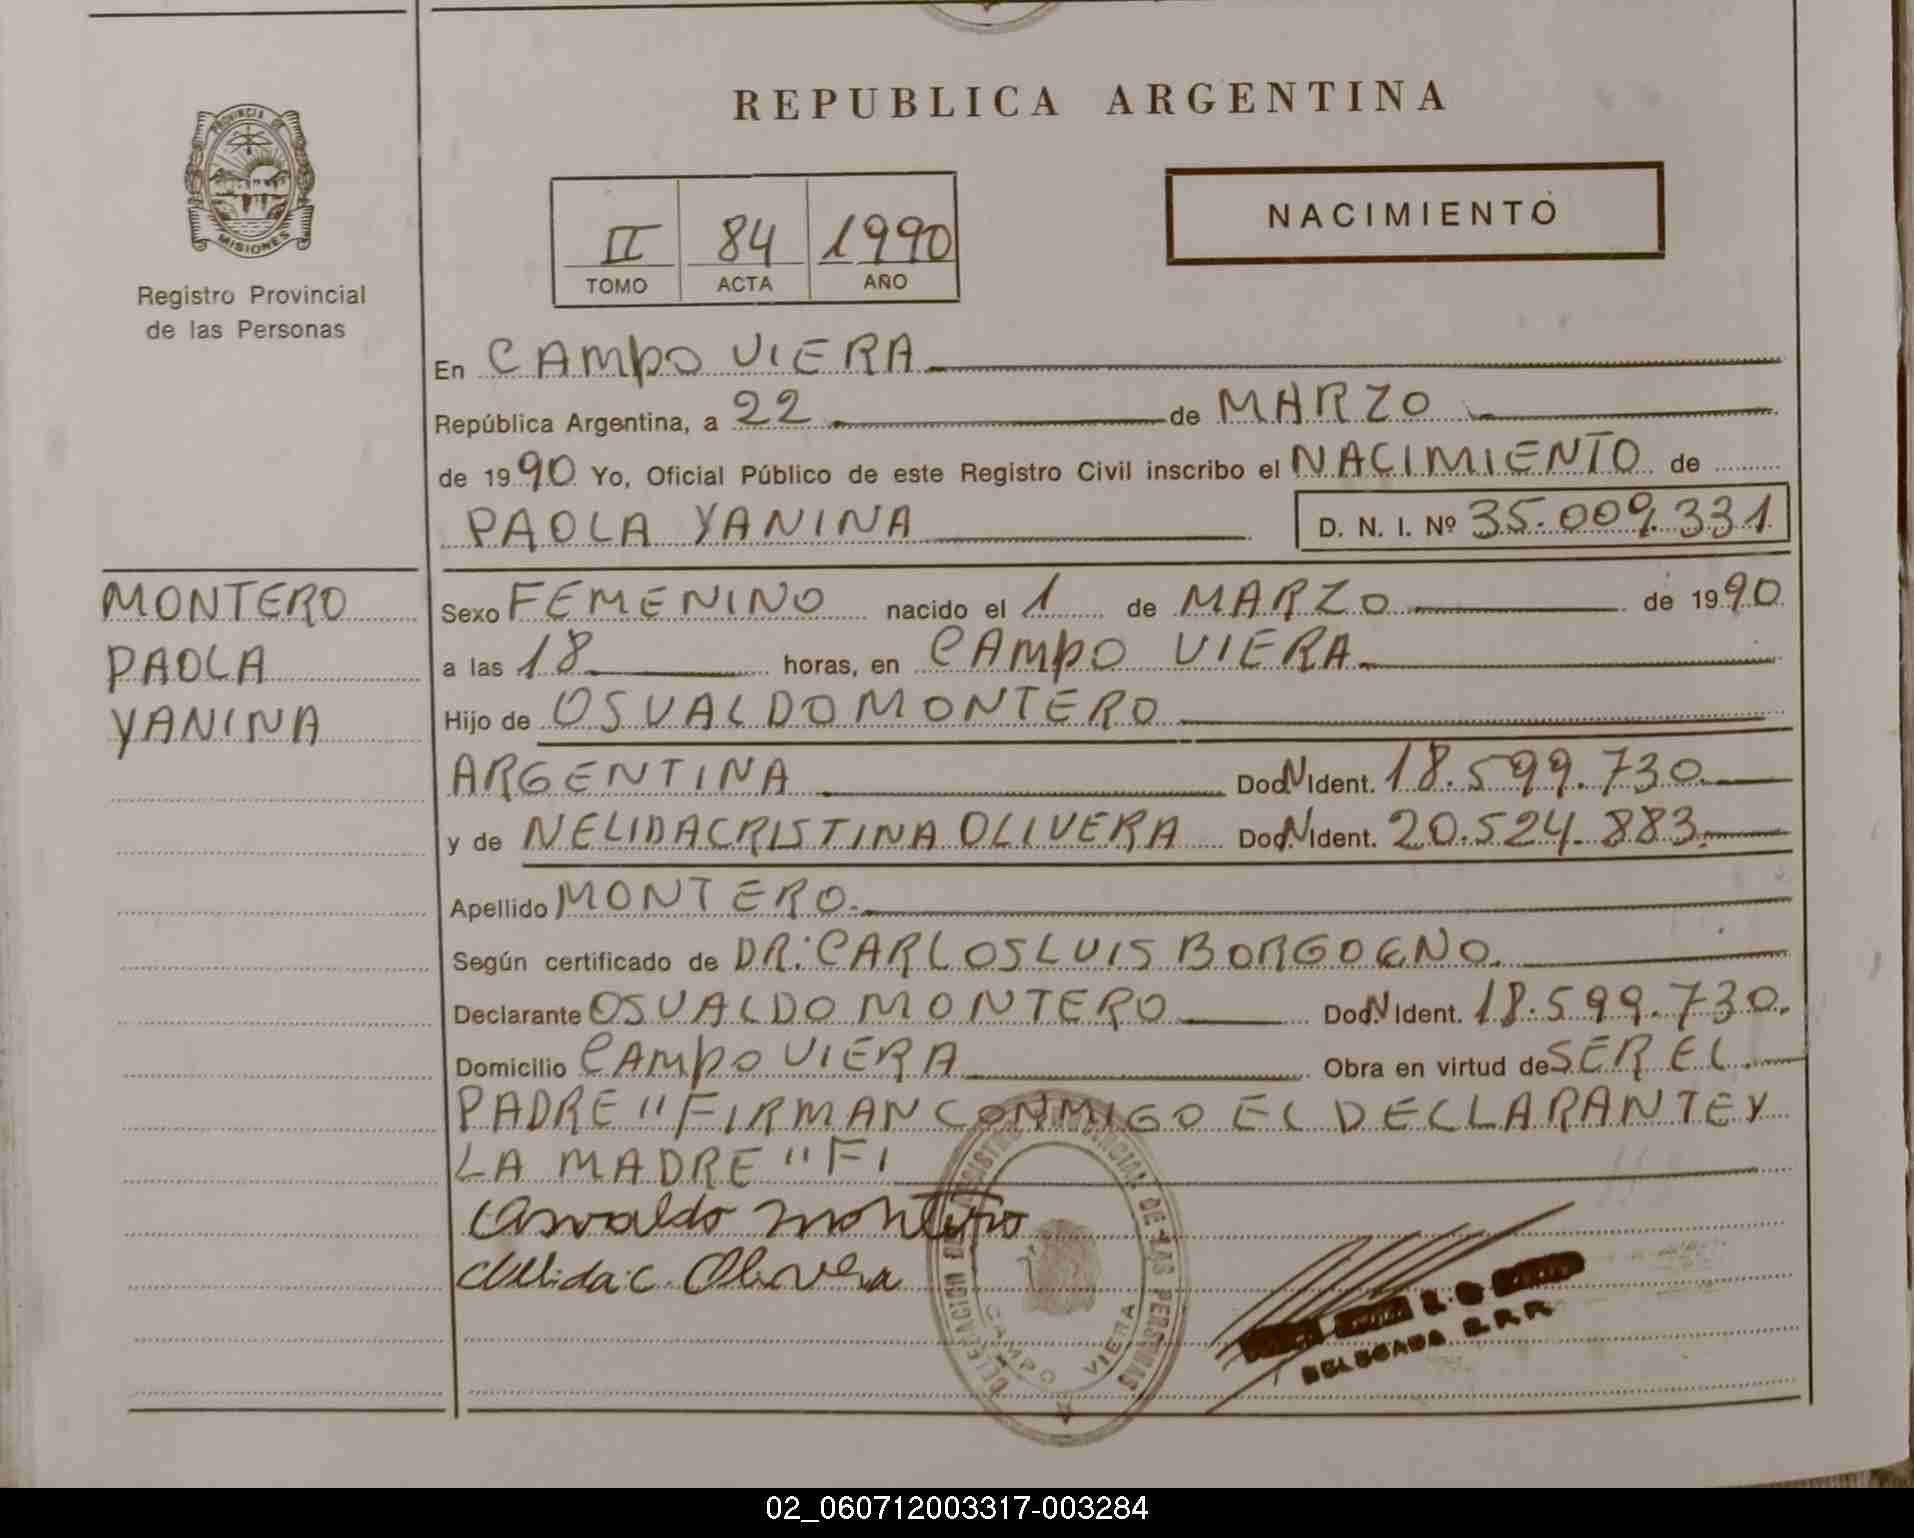 REPUBLICA ARGENTINA
PROVINCIA DE
MISIONES
Registro Provincial
de las Personas
II 84 1990
TOMO ACTA AÑO
NACIMIENTO
En CAMPO VIERA
República Argentina, a 22 de MARZO
de 1990 Yo, Oficial Público de este Registro Civil inscribo el NACIMIENTO de
PAOLA YANINA D. N. I. Nº 35.009.331
MONTERO
PAOLA
YANINA
Sexo FEMENINO nacido el 1 de MARZO de 1990
a las 18 horas, en CAMPO VIERA
Hijo de OSVALDO MONTERO
ARGENTINA Doc.N Ident. 18.599.730
y de NELIDA CRISTINA OLIVERA Doc.N Ident. 20.524.883
Apellido MONTERO.
Según certificado de DR: CARLOS LUIS BORGOGNO.
Declarante OSVALDO MONTERO Doc.N Ident. 18.599.730.
Domicilio CAMPO VIERA Obra en virtud de SER EL
PADRE "FIRMAN CONMIGO EL DECLARANTE Y
LA MADRE "FI
Osvaldo Montero
Nelida C. Olivera
DELEGACION DEL REGISTRO PROVINCIAL DE LAS PERSONAS
CAMPO VIERA
DELEGADA R.P.P.
02_060712003317-003284